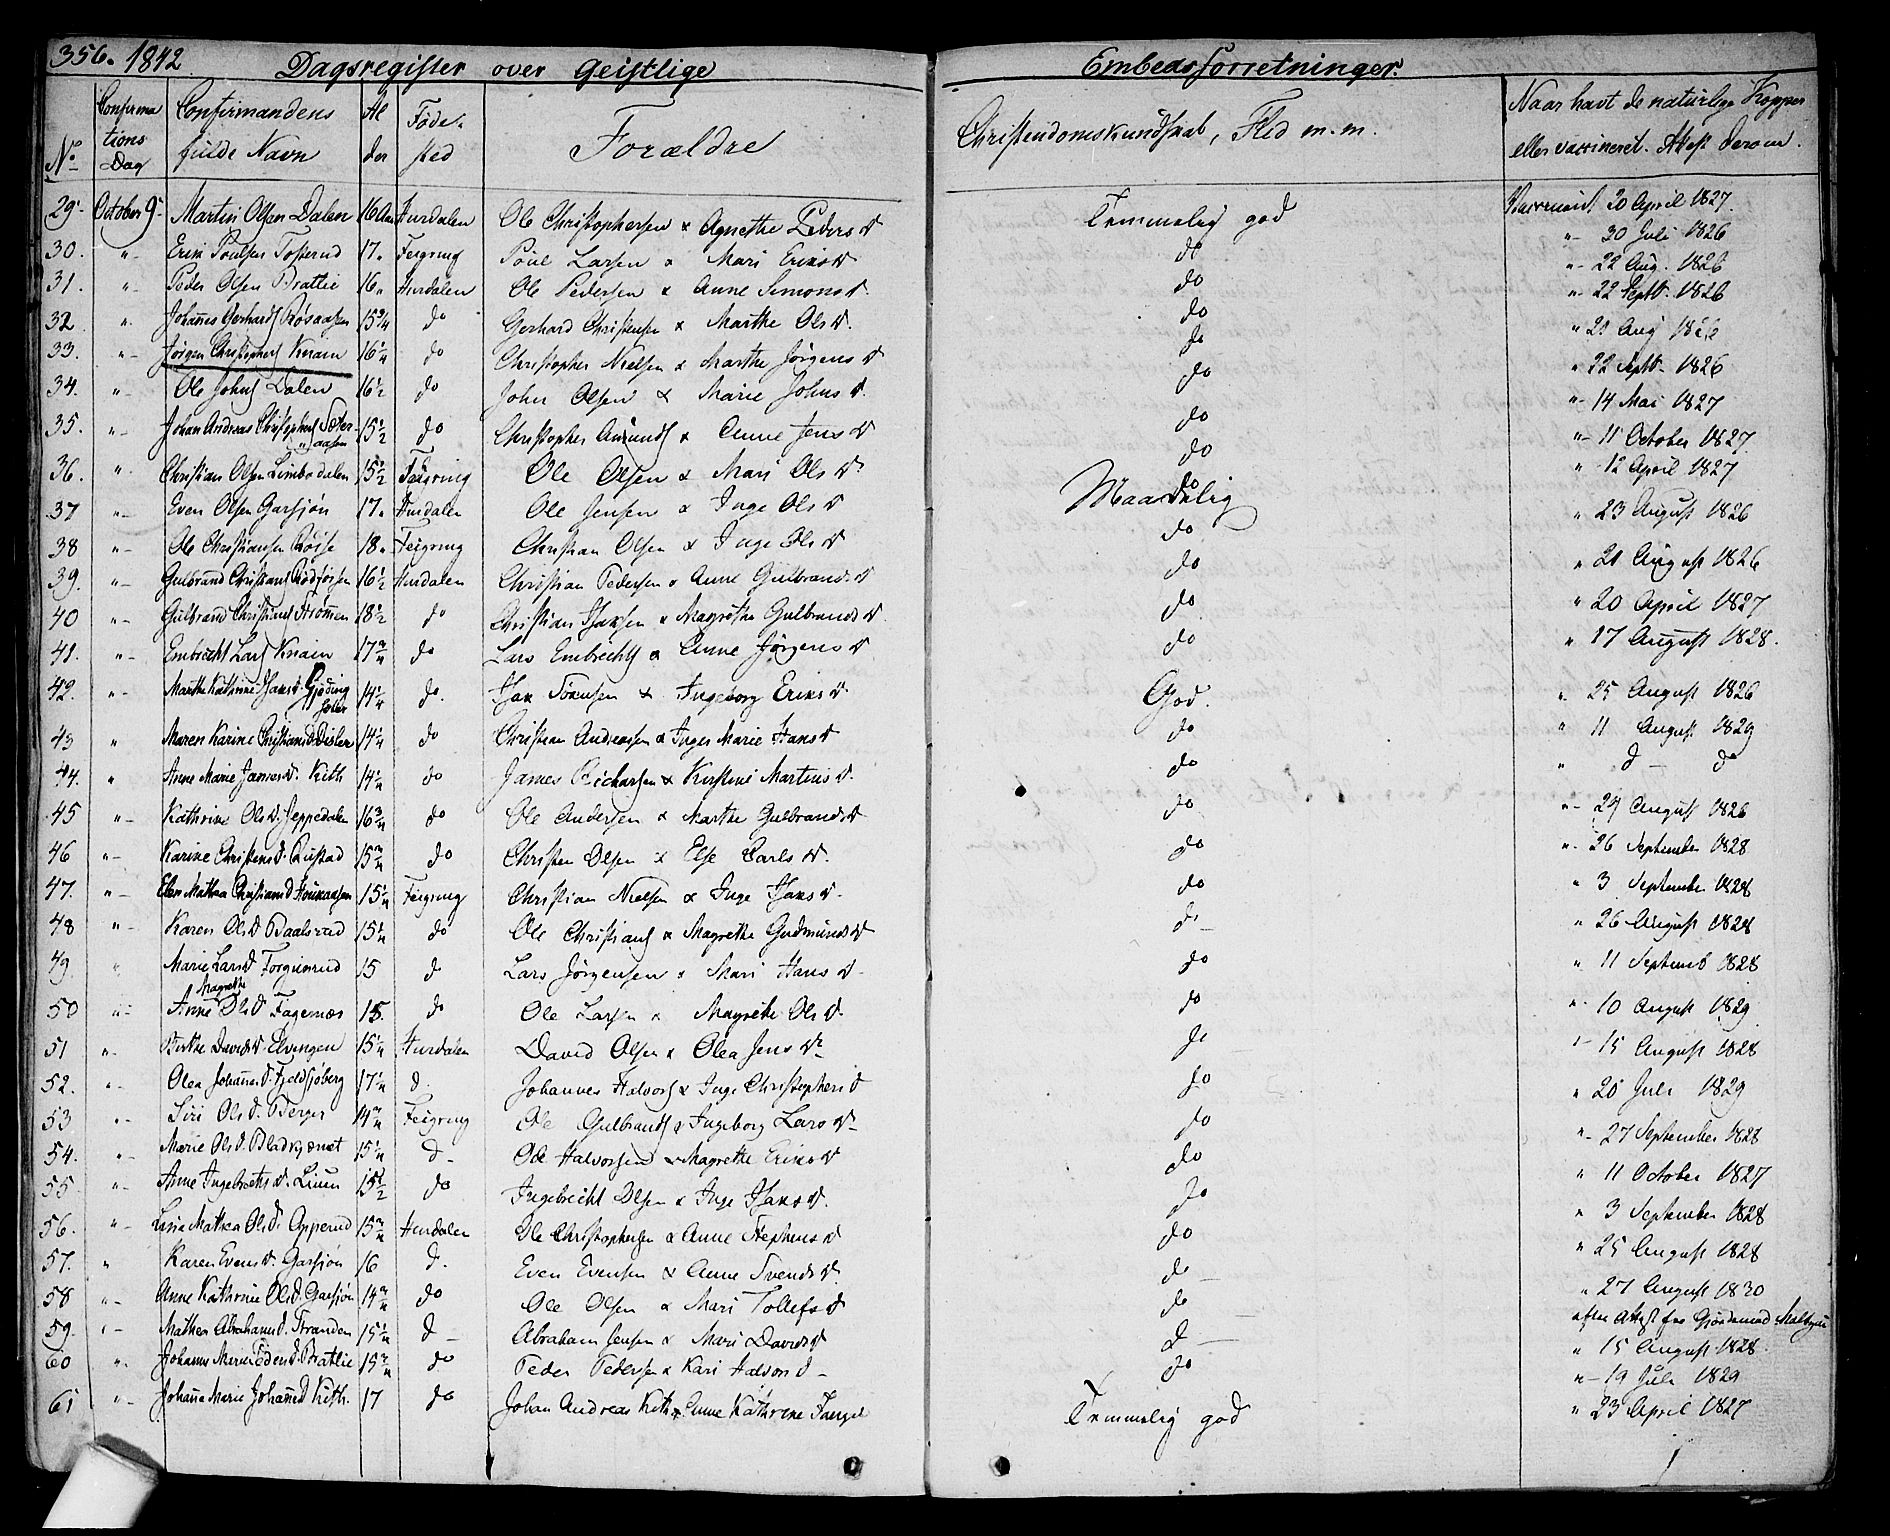 356. 1842. Dagsregister over Geistlige Embedsforretninger.
No Confirmations Dag Confirmandens fulde Navn Alder Fødested Forældre Christendomskundskab, Flid m.m. Naar havt de naturlige Kopper eller vaccineret. Attest derom.
29. October 9. Martin Olsen Dalen 16 Aar Hurdalen Ole Christophersen x Agnethe Pedersd Temmelig god 20 April 1827.
30. "- Erik Poulsen 17. Feigring Poul Larsen x Mari Eriksd do "- 30 Juli 1826
31. "- Peder Olsen Bratlie 16. Hurdalen Ole Pedersen x Anne Simonsd. do "- 22 Aug. 1826
32 "- Johannes Gerhards Røsaasen 15 3/4 do Gerhard Christensen x Marthe Olsd. do "- 22 Sept. 1826
33. "- Jørgen Christophers Knain 16 1/4 do Christopher Nielsen x Marthe Jørgensd do " 21 Aug 1826
34. "- Ole Johns Dalen 16 1/2 do John Olsen x Marie Johnsd. do " 22 Sept. 1826
35. "- Johan Andreas Christophers Sæteraasen 15 1/2 do Christopher Amunds x Anne Jensd do "- 14 Mai 1827
36. " Christian Olsen Limbodalen 15 1/2 Feigring Ole Olsen x Mari Olsd. do "- 11 October 1827.
37 "- Even Olsen Garsjøn 17. Hurdalen Ole Jensen x Inge Olsd Maadelig do " 12 April 1827
38 "- Ole Christiansen 18. Feigring Christian Olsen x Inge Olsd do " 23 August 1826
39. "- Gulbrand Christians Rødsjøsen 16 1/2 Hurdalen Christian Pedersen x Anne Gulbrandsd do " 21 August 1826
40 "- Gulbrand Christians Strømen 18 1/2 do Christian Hansen x Magrethe Gulbrandsd do " 20 April 1827
41. "- Embrecht Lars Knain 17 3/4 do Lars Embrechts x Anne Jørgensd do " 17 August 1828.
42. "- Marthe Kathrine Hansd. Gjøding 14 1/4 do. Han x Ingeborg Eriksd. God. " 25 August 1826
43 " Maren Karine Christiansd. Disler 14 1/4 do Christian Andreasen x Inger Marie Hansd do " 11 August 1829
44. " Anne Marie Jamesd. Kith 14 1/4 do James Richarsen x Kirstine Martinsd. do " d - do
45 "- Kathrine Olsd. Seppedalen 16 3/4 do Ole Andersen x Marthe Gulbrandsd do "- 24 August 1826
46 "- Karine Christensd. Rustad 15 3/4 do Christen Olsen x Else Carlsd. do " 26 September 1828
47. "- Elen Mathea Christiansd. 15 1/4 Feigring Christian Nielsen x Inge Hansd. do " 3 September 1828
48 "- Karen Olsd Baalsrud 15 1/4 do Ole Christians x Magrethe Gudmundsd do - " 26 August 1828
49 " Marie Larsd Torgunrud 15 d Lars Jørgensen x Mari Hansd. do " 11 Septemb 1828
50 "- Anne Magrethe Olsd. Fagernæs 15. do Ole Larsen x Magrethe Olsd. do " 10 August 1829
51 "- Birthe Davidsd. Elvengen 15 1/4 Hurdalen David Olsen x Olea Jensd. do - " 15 August 1828
52. "- Olea Johannesd. Fjeldsjøberg 17 1/4 d. Johannes Halvors x Inge Christophersd do " 20 Juli 1829
53 "- Siri Olsd. Berger 14 3/4 Feigring Ole Gulbrands x Ingeborg Larsd. do "- 27 September 1828
54. "- Marie Olsd. Bladkjærnet 15 1/4 d - Ole Halvorsen x Magrethe Eriksd do " 11 October 1827
55 "- Anne Ingebrechtsd. Liuen 15 1/2 do Ingebrecht Olsen x Inge Hansd. do " 3 September 1828
56. "- Lisa Mathea Olsd. Opperud 15 3/4 Hurdalen Ole Christophersen x Anne Stephensd do " 25 August 1828
57. " Karen Evensd. Garsjøn 16 d. Even Evensen x Anne Svendsd. do - " 27 August 1830
58 "- Anne Kathrine Olsd. Garsjøn 14 3/4 do Ole Olsen x Mari Tollefsd do - efter Attest fra
59. "- Mathea Abrahamsd. Stranden 15 1/4 d - Abraham Jensen x Mari Davidsd d - " 15 August 1828.
60 "- Johanne Marie Pedersd. Bratlie 15 3/4 do Peder Pedersen x Kari Halvorsd - do "- 19 Juli 1829
61 "- Johanne Marie Johansd Kith. 17 do Johan Andreas Kith x Anne Kathrine Temmelig god " 23 April 1827